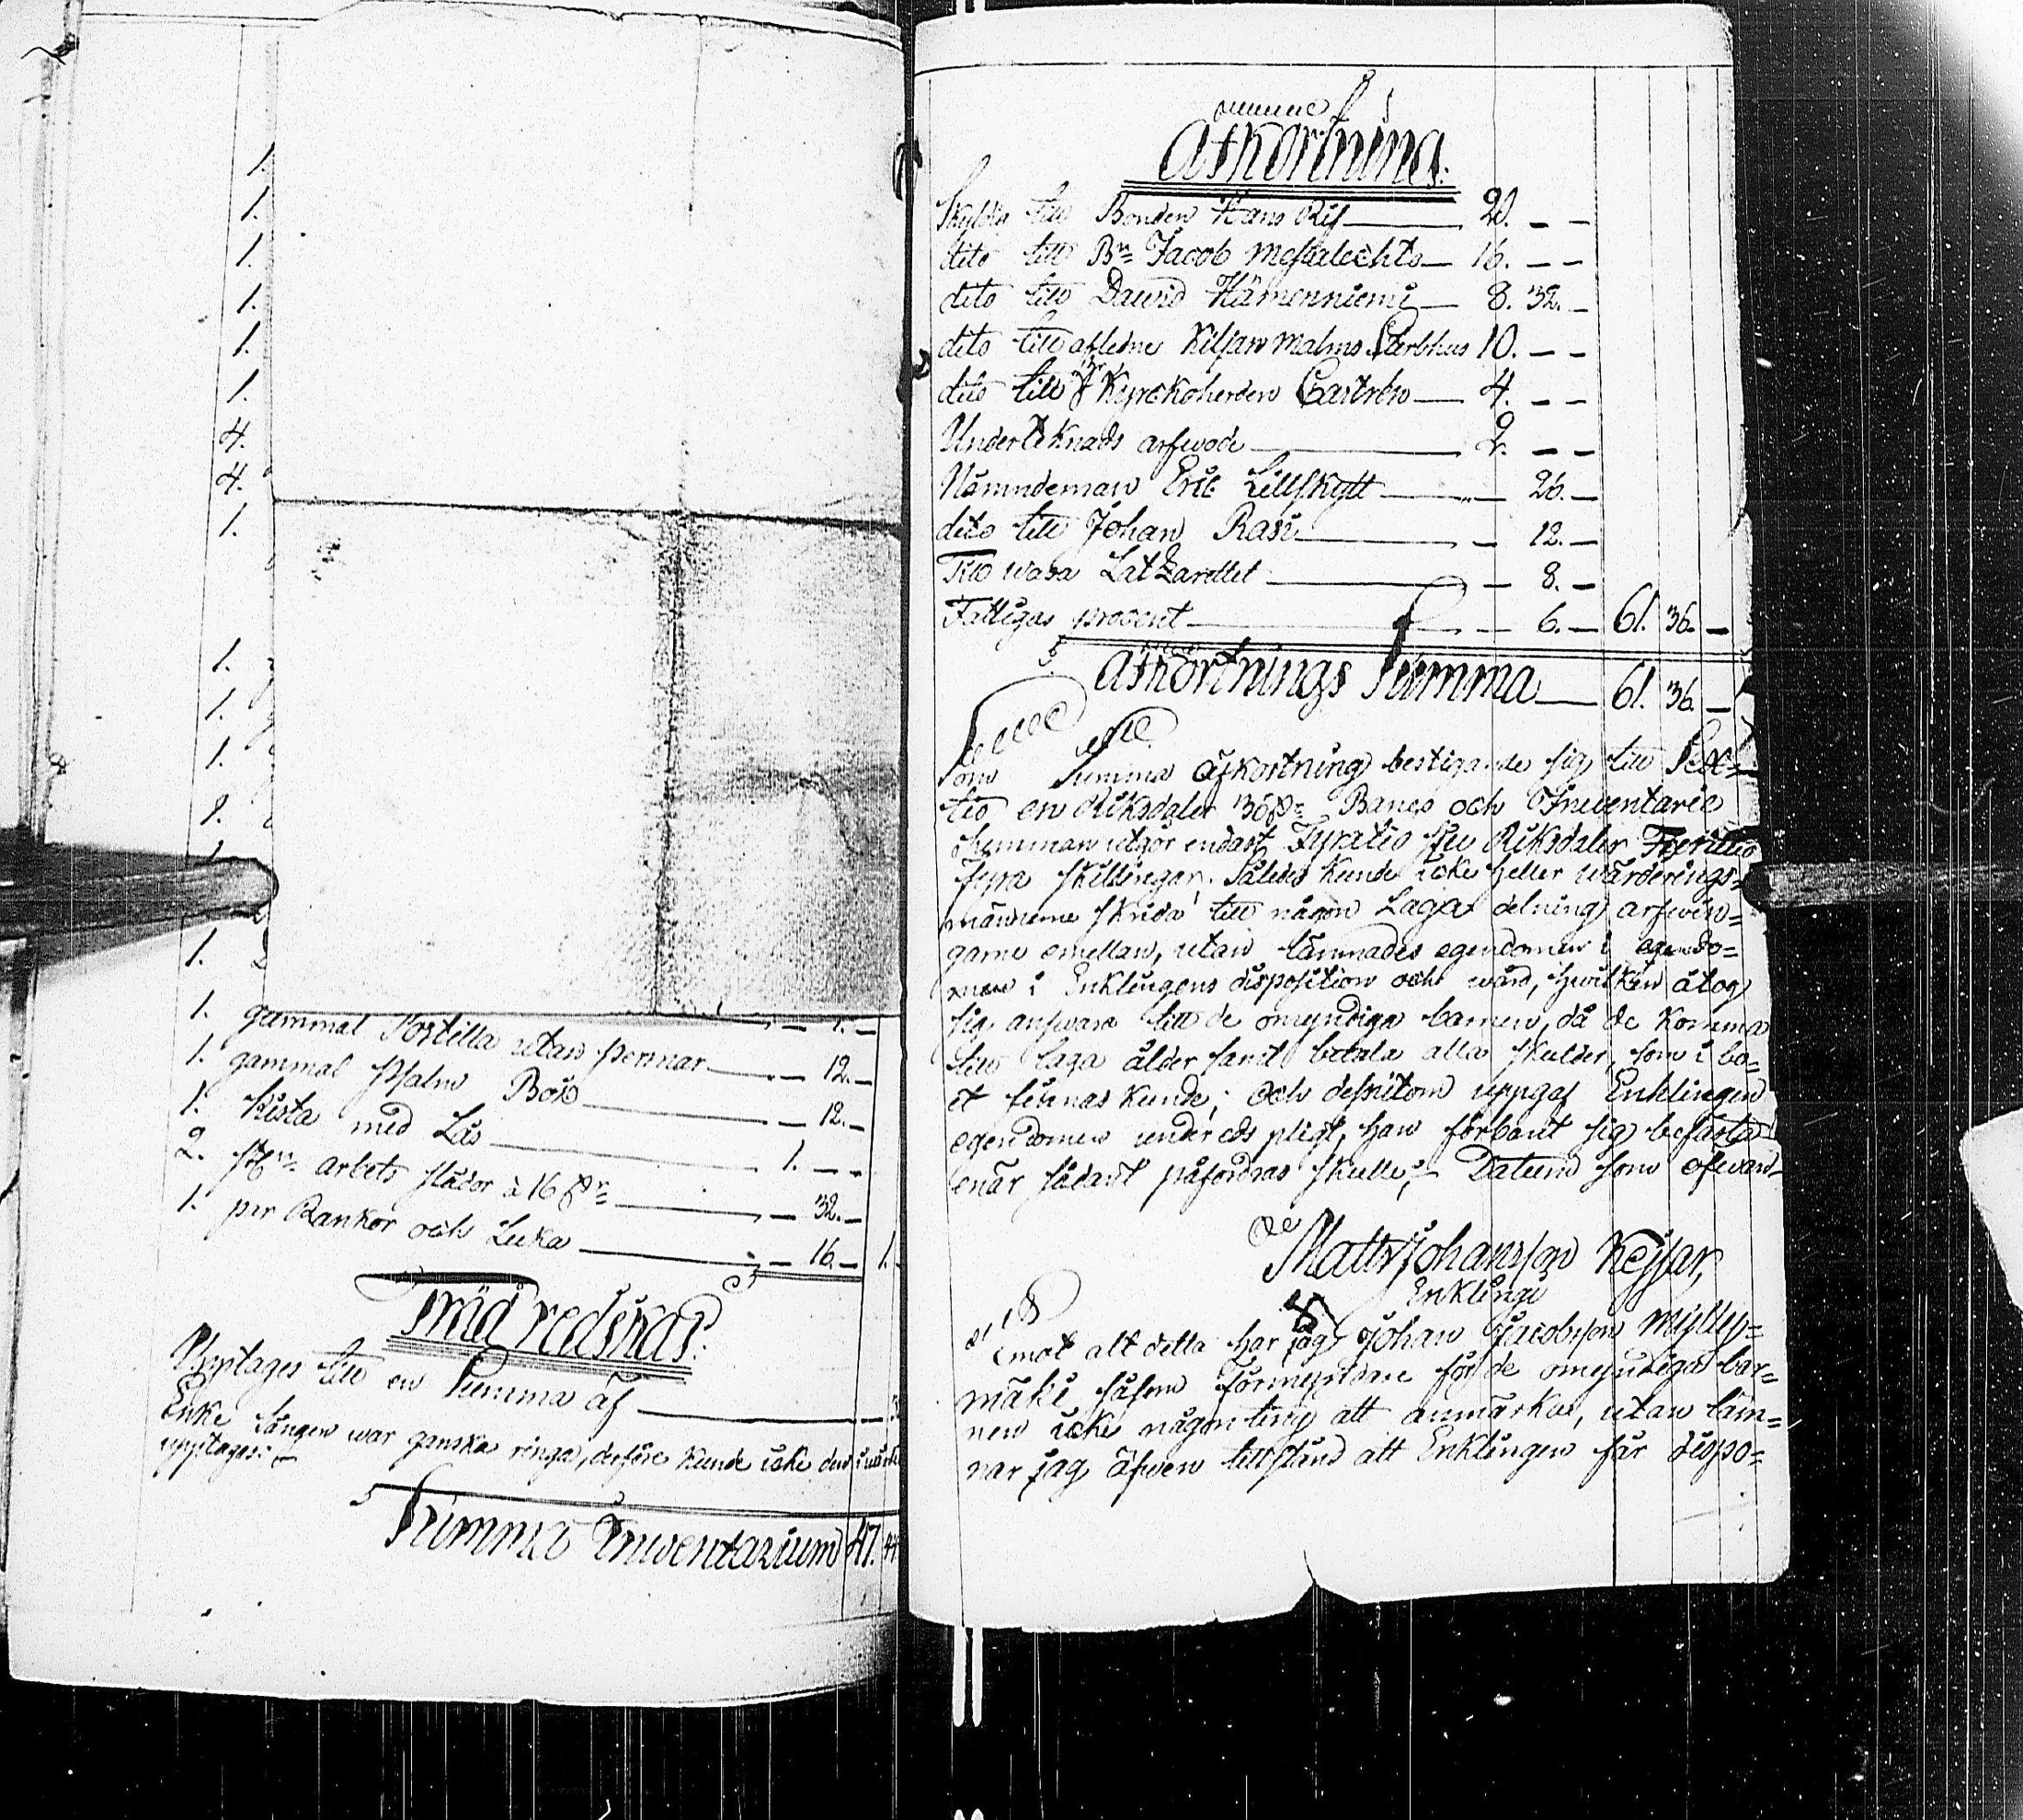 1.
1.
1.
1.
1.
1.
4.
4.
1.
1.
1.
1.
1.
1. gammal Postilla utan permar — 12. —
1. gammal Psalm Bok — 12. —
1. Kista med Lås 1. — —
2. arbets slädor à 16 — 32. —
1. par Bankor och Luka — 16. — 1.
Träd redskap.
Upptages till en Summa af
Enke Sängen war ganska ringa, derföre kunde icke den
upptages: —
Summa Inventarium 47. 44
Afkortning.
Skyldig till Bonden Hans Rif 20. — —
dito till Bn Jacob 16. — —
dito till David Hämenniemi 8. 32. —
dito till aflidne Kiljan Malms Sterbhus 10. — —
dito till Kyrckoherden Castrén 4. — —
Underteknads arfwode 2. — —
Nämndeman Eric Lillskytt — 26. —
dito till Johan Rasi — 12. —
Till Wasa Latzarettet — 8. —
Fattigas procent — 6. — 61. 36. —
Afkortnings Summa 61. 36. —
Som Summa afkortning bestigande sig till Sex=
tio en Riksdaler 36 Banco och Inventarie
Summan utgör endast Fyratio sju Riksdaler Fyratio
fyra skillingar. Således kunde icke heller wärderings=
männerne skrida till någon Laga delning arfwin=
game emellan, utan lämnades egendomen i egendo=
men i Enklingens disposition och wård, hwilken åtog
sig answara till de omyndiga barnen, då de komma
till laga ålder samt betala alla skulder, som i bo=
et finnas kunde; och dessutom uppgaf Enklingen
egendomen under eds pligt, han förbant sig befästa
enär sådant påfordras skulle, — Datum som ofwan
Matts Johansson Keisar,
Enkling
Emot alt detta har jag Johan Jacobsson Mylly=
mäki såsom Förmyndare för de omyndiga bar=
nen icke någon ting att anmärka, utan läm=
nar jag äfwen tillstånd att Enklingen får dispo=